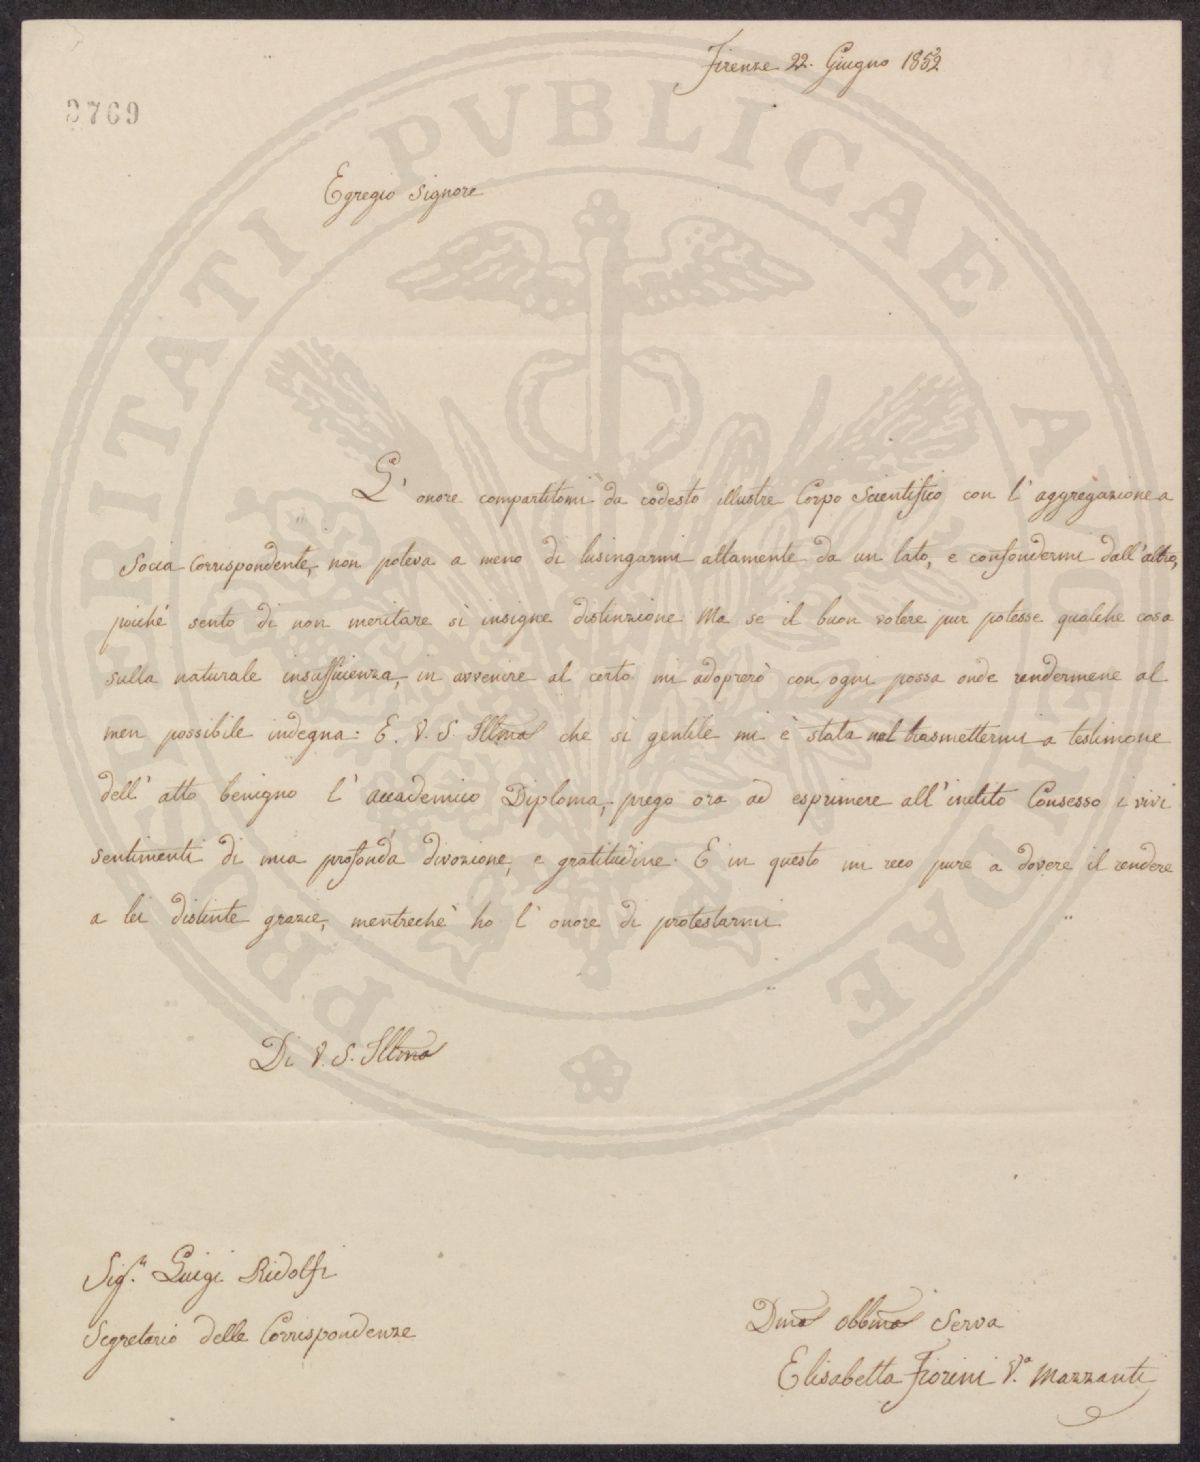 Firenze 22. Giugno 1852
3769
Egregio Signore
L'onore compartitomi da codesto illustre Corpo Scientifico con l'aggregazione a
Socia Corrispondente, non poteva a meno di lusingarmi altamente da un lato, e confondermi dall'altro,
poiché sento di non meritare sì insigne distinzione. Ma se il buon volere pur potesse qualche cosa
sulla naturale insufficienza, in avvenire al certo mi adoprerò con ogni possa onde rendermene al
men possibile indegna: E. V. S. Illma che si gentile mi è stata nel trasmettermi a testimone
dell'atto benigno l'accademico Diploma, prego ora ad esprimere all'inclito Consesso i vivi
sentimenti di mia profonda divozione, e gratitudine. E in questo mi reco pure a dovere il rendere
a lei distinte grazie, mentreché ho l'onore di protestarmi
Di V. S. Illma
Sig.r Luigi Ridolfi
Segretario delle Corrispondenze
Dma obbma Serva
Elisabetta Fiorini V.a Mazzanti
PROSPERITATI PVBLICAE AVGENDAE